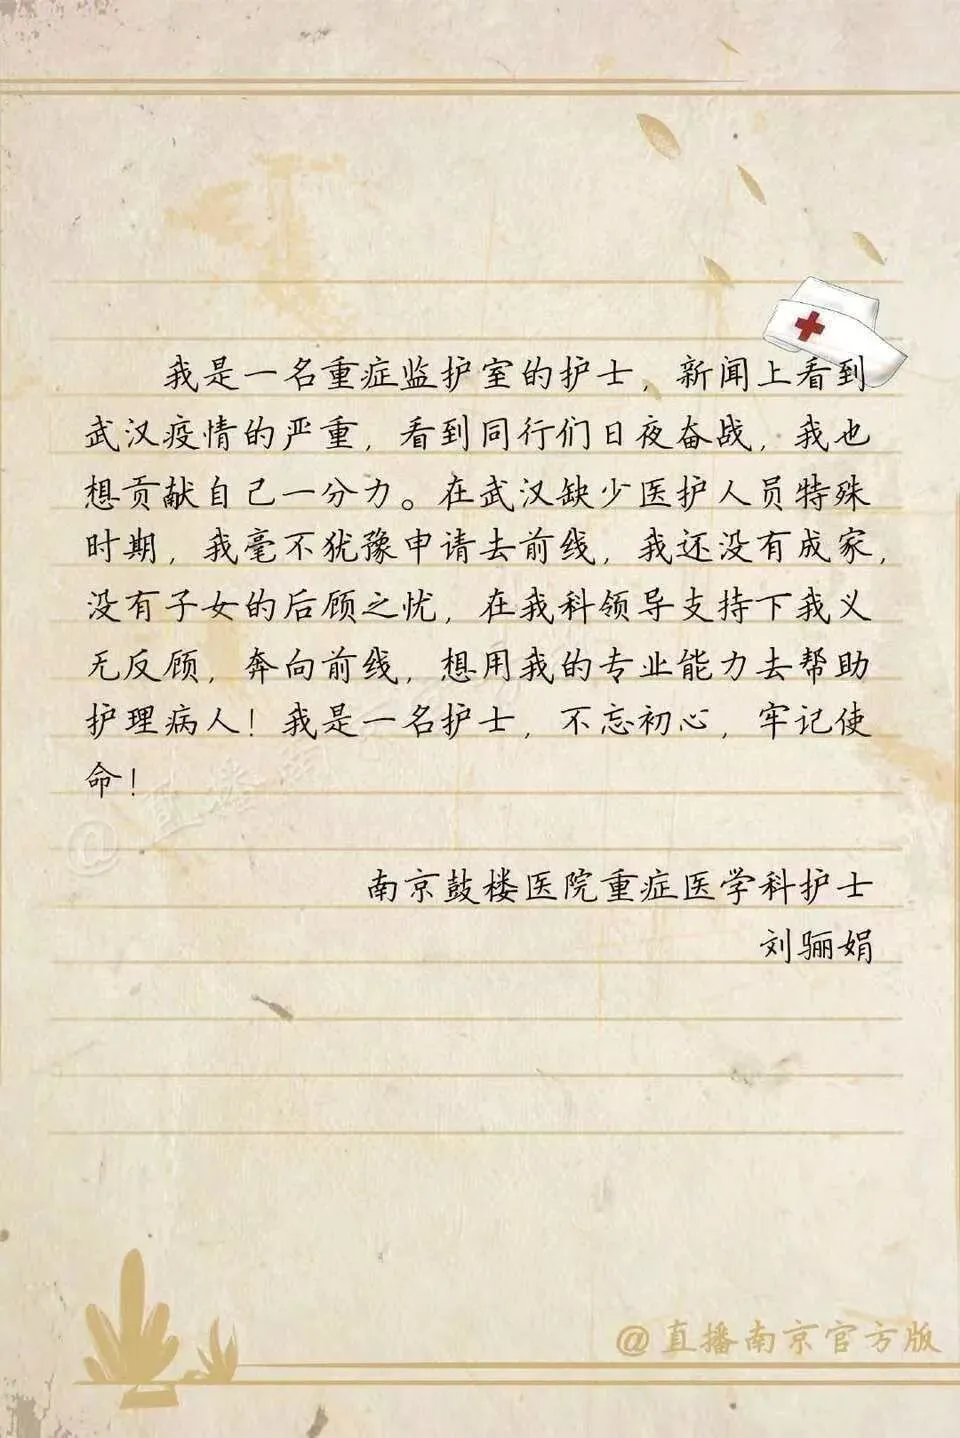 我是一名重症监护室的护士，新闻上看到
武汉疫情的严重，看到同行们日夜奋战，我也
想贡献自己一分力。在武汉缺少医护人员特殊
时期，我毫不犹豫申请去前线，我还没有成家，
没有子女的后顾之忧，在我科领导支持下我义
无反顾，奔向前线，想用我的专业能力去帮助
护理病人！我是一名护士，不忘初心，牢记使
命！
南京鼓楼医院重症医学科护士
刘骊娟
@直播南京官方版